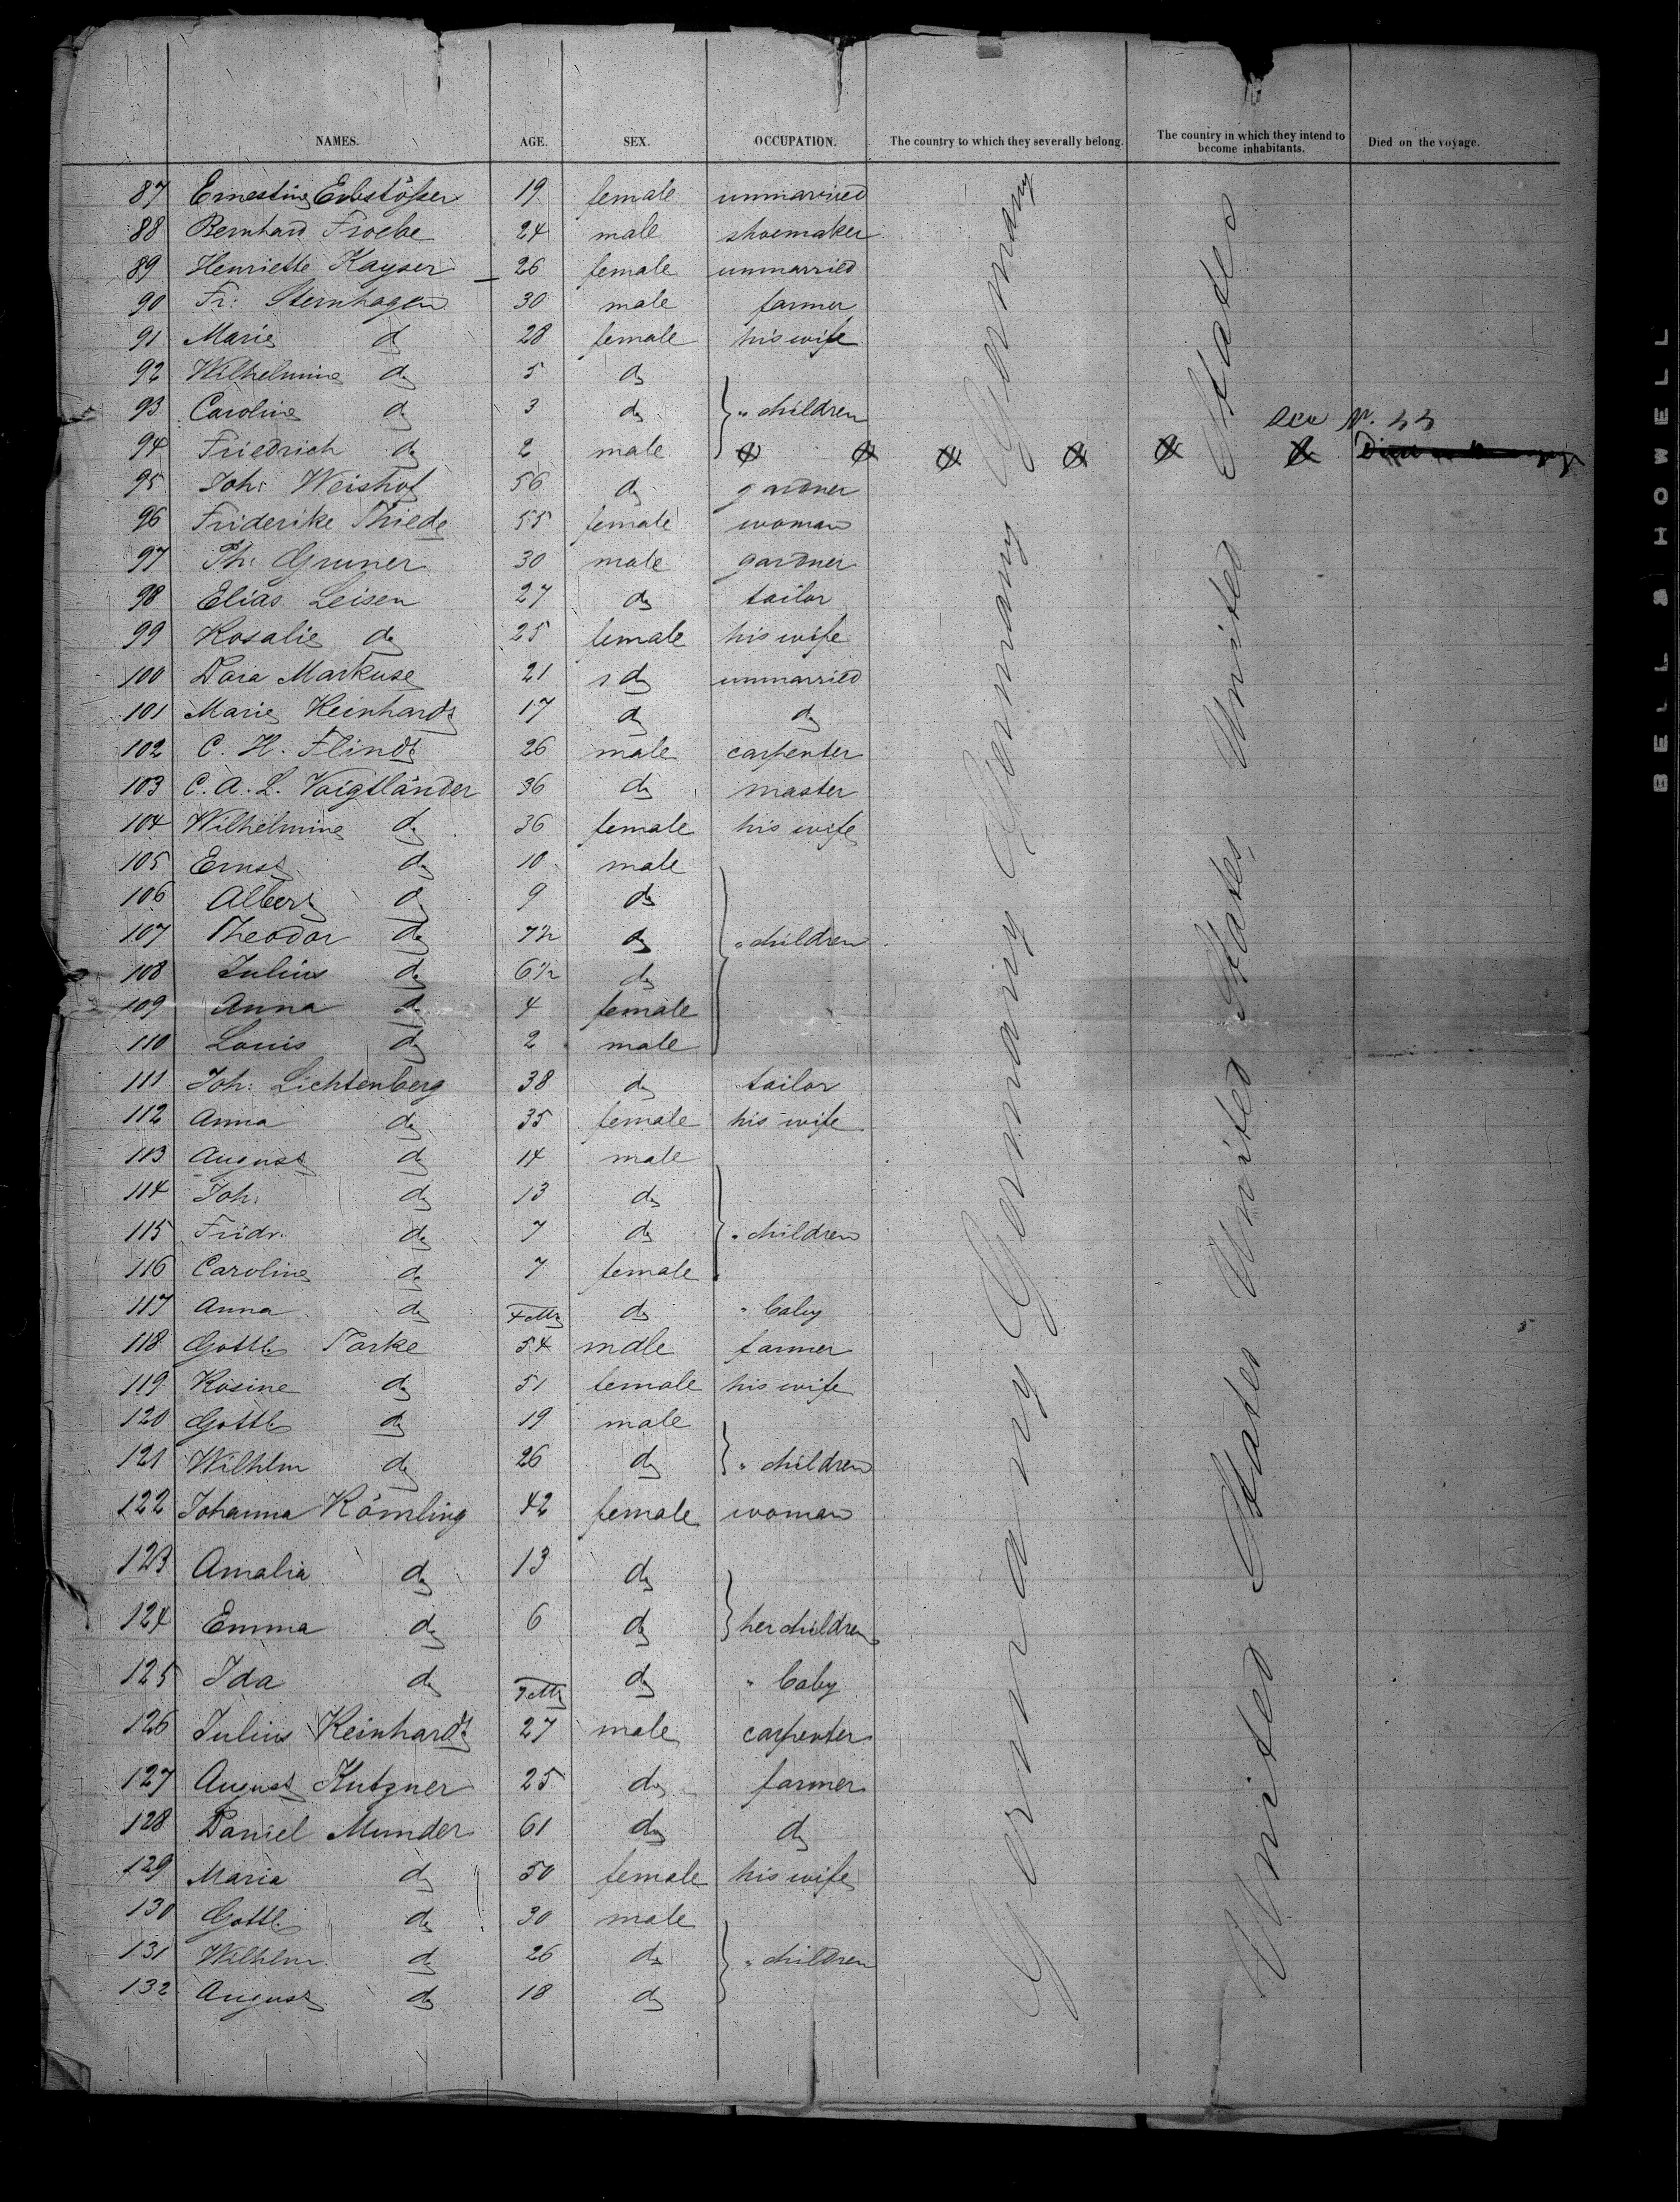 NAMES. AGE. SEX. OCCUPATION. The country to which they severally belong. The country in which they intend to become inhabitants. Died on the voyage.
87 Ernestine 19 female unmarried
88 Bernhard Froebe 24 male shoemaker
89 Henriette Kayser 26 female unmarried
90 Fr: Sternhagen 30 male farmer
91 Marie do 28 female his wife
92 Wilhelmine do 5 do
93 Caroline do 3 do " children
94 Friedrich do 2 male
95 Joh: Weishof 56 do gardner
96 Friderike Thiede 55 female woman
97 Ph: Gruner 30 male gardner
98 Elias Leisen 27 do tailor
99 Rosalie do 25 female his wife
100 Dora Markuse 21 do unmarried
101 Marie Reinhardt 17 do do
102 C. H. Flindt 26 male carpenter
103 C. A. L. Voigtländer 36 do master
104 Wilhelmine do 36 female his wife
105 Ernst do 10 male
106 Albert do 9 do
107 Theodor do 7½ do " children
108 Julius do 6½ do
109 Anna do 4 female
110 Louis do 2 male
111 Joh: Lichtenberg 38 do tailor
112 Anna do 35 female his wife
113 August do 14 male
114 Joh: do 13 do
115 Fridr. do 7 do " children
116 Caroline do 7 female
117 Anna do do " baby
118 Gottl. Parke 54 male farmer
119 Rosine do 51 female his wife
120 Gottl. do 19 male
121 Wilhlm do 26 do " children
122 Johanna Römling 42 female woman
123 Amalia do 13 do
124 Emma do 6 do her children
125 Ida do do " baby
126 Julius Reinhardt 27 male carpenter
127 August Kutzner 25 do farmer
128 Daniel Munder 61 do do
129 Maria do 50 female his wife
130 Gottl. do 30 male
131 Wilhlm. do 26 do " children
132 August do 18 do
Germany Germany Germany Germany
United States United States United States
BELL & HOWELL